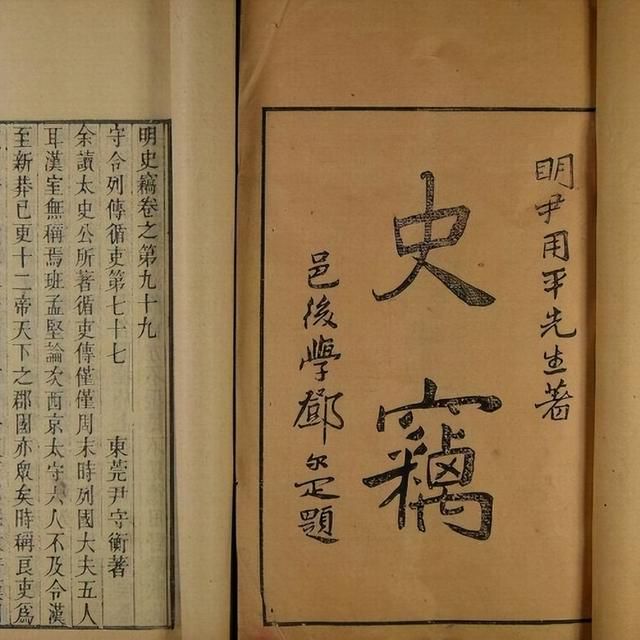 明尹用平先生著
史竊
邑後學鄧尔疋題
明史竊卷之第九十九
守令列傳循吏第七十七 東莞尹守衡著
余讀太史公所著循吏傳僅僅周末時列國大夫五人
耳漢室無稱焉班孟堅論次西京太守六人不及令漢
至新莽已更十二帝天下之郡國亦眾矣時稱良吏爲